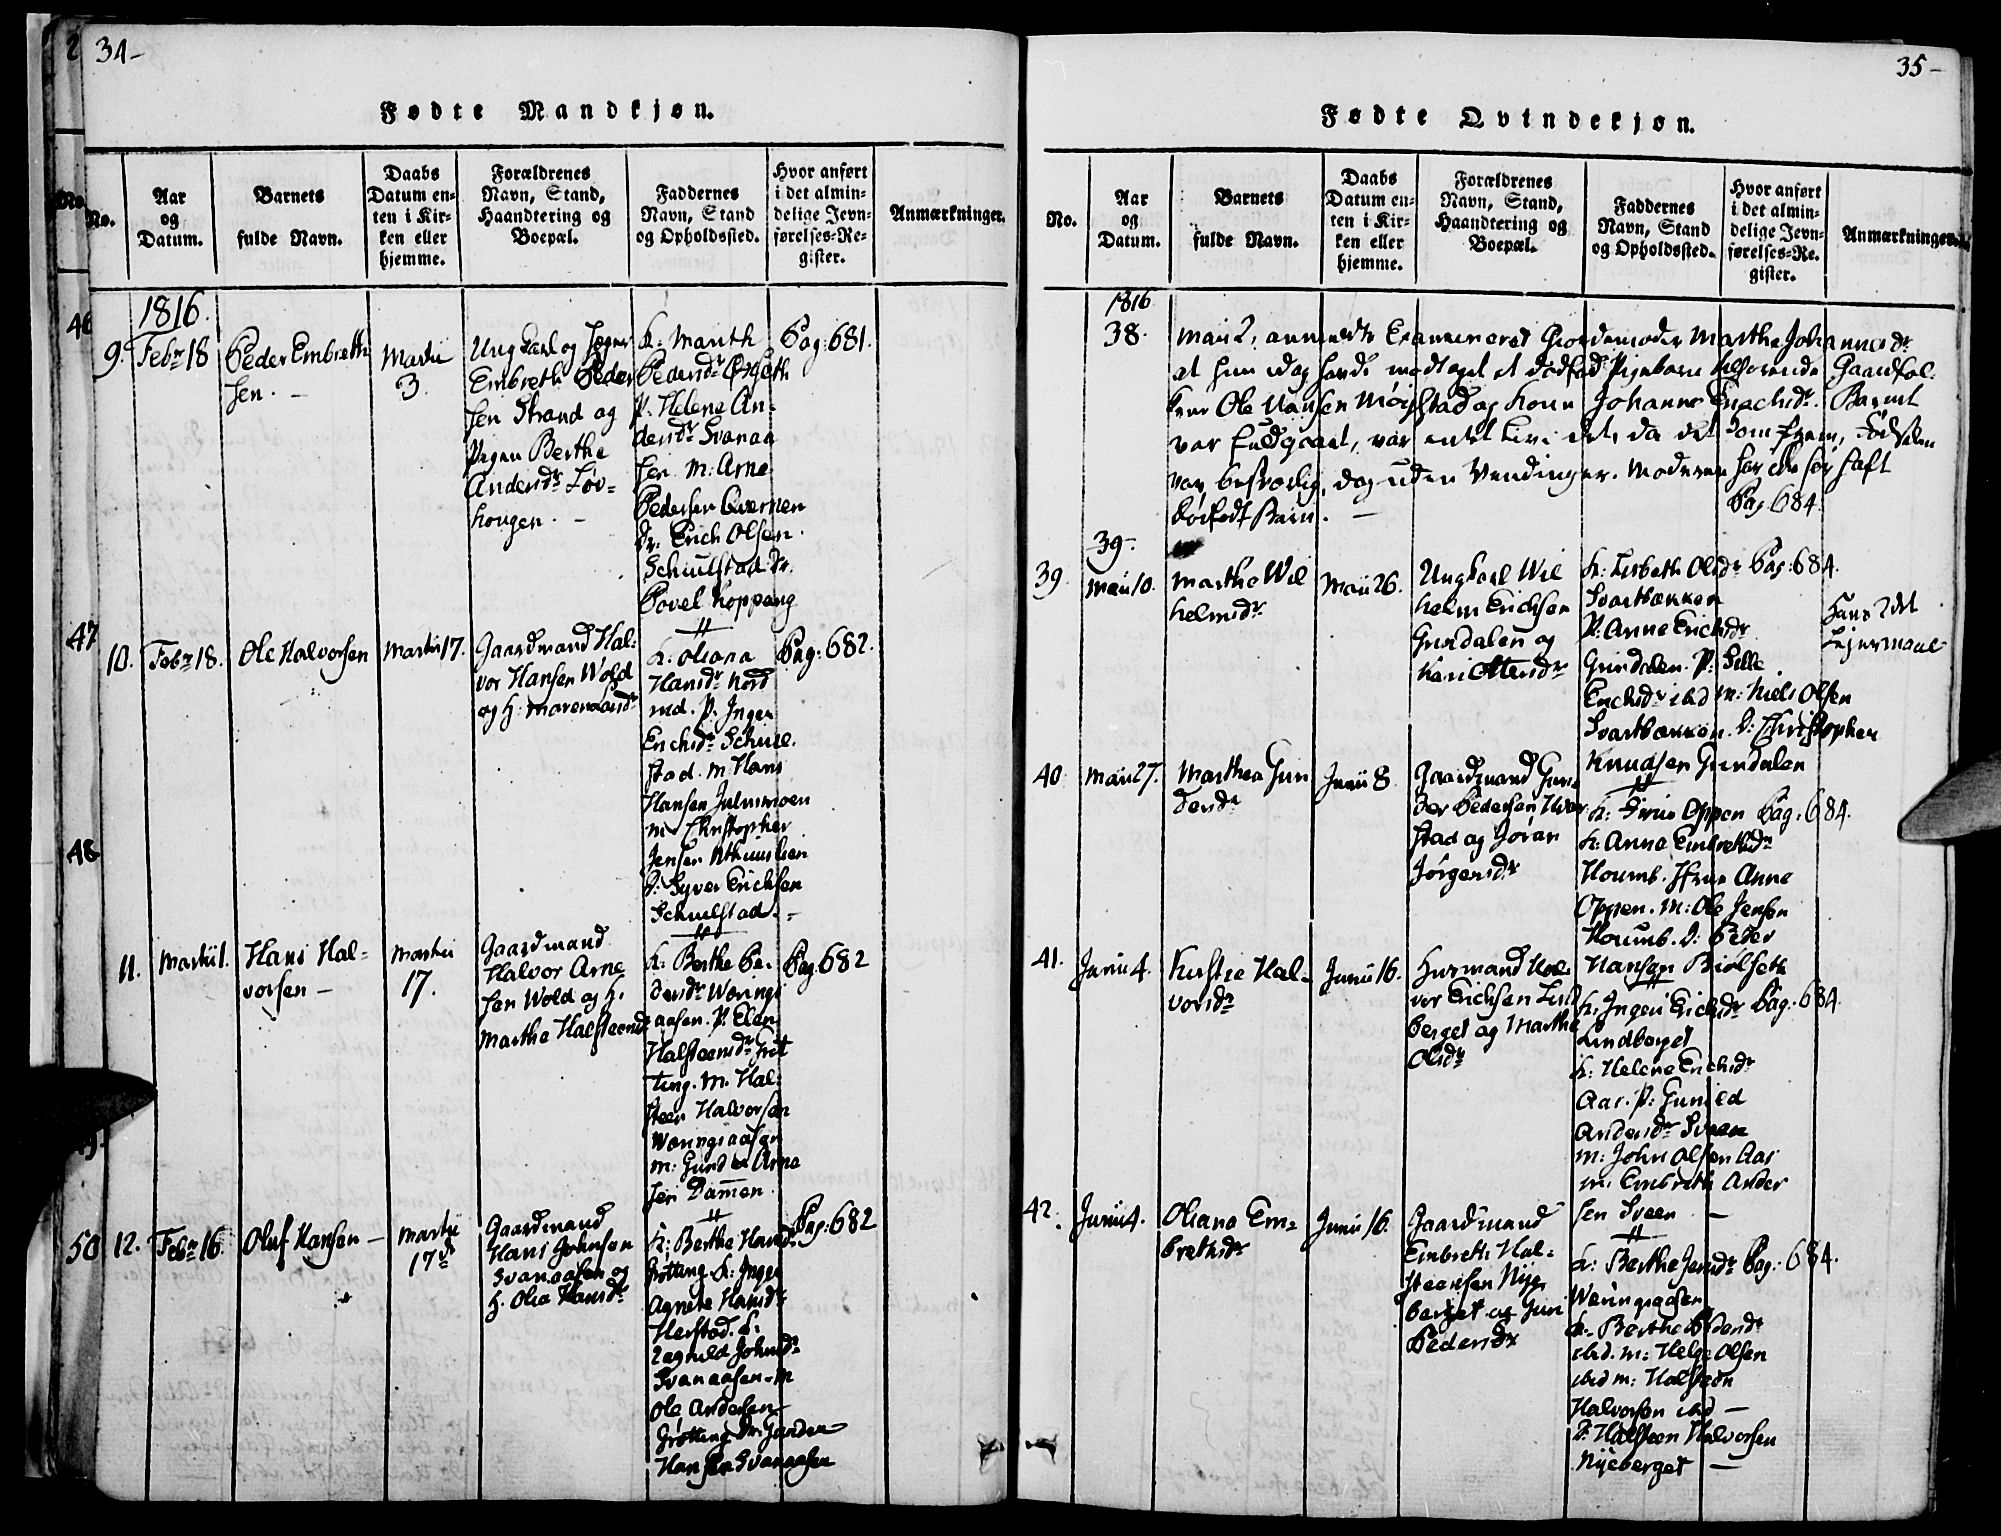 34-
Fødte Mandkjøn.
No.
Aar
og
Datum.
Barnets
fulde Navn.
Daabs
Datum en-
ten i Kir-
ken eller
hjemme.
Forældrenes
Navn, Stand,
Haandtering og
Boepæl.
Faddernes
Navn, Stand
og Opholdssted.
Hvor anført
i det almin-
delige Jevn-
førelses-Re-
gister.
Anmærkninger.
1816.
9.
Febr 18
Peder Embreth
sen. -
Martii
3.
Ung Karl og Jæger
Embreth Peder
sen Strand og
Pigen Berthe
Andersdr Løv=
hougen. -
K: Marith
Pedersdr
P. Helene An-
dersdr Svanaa
sen. M: Arne
Pedersen Qvernen
Dr: Erich Olsen
Schiulstad. Dr.
Povel Koppang
Pag: 681.
10.
Febr 18.
Ole Halvorsen
Martii 17.
Gaardmand Hal:
vor Hansen Wold
og H: Maren
K: Oliana
Hansdr Nord
P. Inger
Erichsdr Schiul
stad. M. Hans
Hansen Julusmoen
M Christopher
Jensen
D: Syver Erichsen
Schiulstad. -
Pag: 682.
11.
Martii 1.
Hans Hal-
vorsen -
Martii
17.
Gaardmand
Halvor Arne
sen Wold og H.
Marthe Halsteensdr
K. Berthe Pe-
dersdr Wænings
aasen. P. Elen
Halsteensdr Grøt
ting. M. Hal-
steen Halvorsen
Wæningsaasen
M: Gunder Arne
sen Dammen.
Pag. 682
12.
Febr 16.
Oluf Hansen -
Martii
17d
Gaardmand
Hans Johnsen
Svanaasen og
H. Olia Hansdr
K: Berthe Hansdr
Grøtting K: Inger
Agnete Hansdr
Herstad. K:
Ragnild Johnsdr
Svanaasen - M
Ole Andersen
Grøtting Dr: Gunder
Hansen Svanaasen
Pag: 682
46
47
48
50
35-
Fødte Qvindekjøn.
No.
Aar
og
Datum.
Barnets
fulde Navn.
Daabs
Datum en-
ten i Kir-
ken eller
hjemme.
Forældrenes
Navn, Stand,
Haandtering og
Boepæl.
Faddernes
Navn, Stand
og Opholdssted.
Hvor anført
i det almin-
delige Jevn-
førelses-Re-
gister.
Anmærkninger.
1816
38.
Maii 2, anmeldte Examineret Giordemoder Marthe Johannesdr
at hun idag havde modtaget et dødfød Pigebarn tilhørende Gaardfol-
kene Ole Hansen Møistad og Kone Johanne Enochsdr. Barnet
var fuldgaaet, var intet Liv i det, da det kom frem, Fødselen
var besværlig, dog uden Vendinger. Moderen har ikke før haft
dødfødt Barn. -
Pag. 684.
39-
39.
Maii 10.
Marthe Wil
helmsdr
Maii 26.
Ungkarl Wil
helm Erichsen
Grindalen og
Kari Ottersdr
K: Lisbeth Olsdr
Svartbækken
P: Anne Erichsdr
Grindalen. P: Sille
Erichsdr ibd M: Niels Olsen
Svartbækken. D: Christopher
Knudsen Grindalen
Pag: 684.
Hans 2det
Lejermaal
40
Maii 27.
Marthea Gun
dersdr
Junii 8.
Gaardmand Gun
der Pedersen Hvar
stad og Jøran
Jørgensdr
K: Sirus Oppen
K: Anne Embrethsdr
Houmb. Jfrue Anne
Oppen. M: Ole Jensen
Houmb. D: Peder
Hansen Biølseth
Pag: 684.
41.
Junii 4.
Kirstie Hal-
vorsdr
Junii 16.
Huusmand Hal-
vor Erichsen Lind
berget og Marthe
Olsdr
K: Ingeri Erichsdr
Lindberget
K: Helene Erichsdr
Aas. P: Gunild
Andersdr Sveen
M: John Olsen Aas
M: Embreth Ander
sen Sveen -
Pag: 684
42.
Junii 4.
Oliana Em=
brethsdr
Junii 16.
Gaardmand
Embreth Hal=
steensen Nye
berget og Guri
Pedersdr
K: Berthe Jensdr
Wæningsaasen
K. Berthe Pedersdr
ibid. M: Helge Olsen
ibid M: Halsteen
Halvorsen ibd -
D: Halsteen Halvorsen
Nyeberget -
Pag: 684.